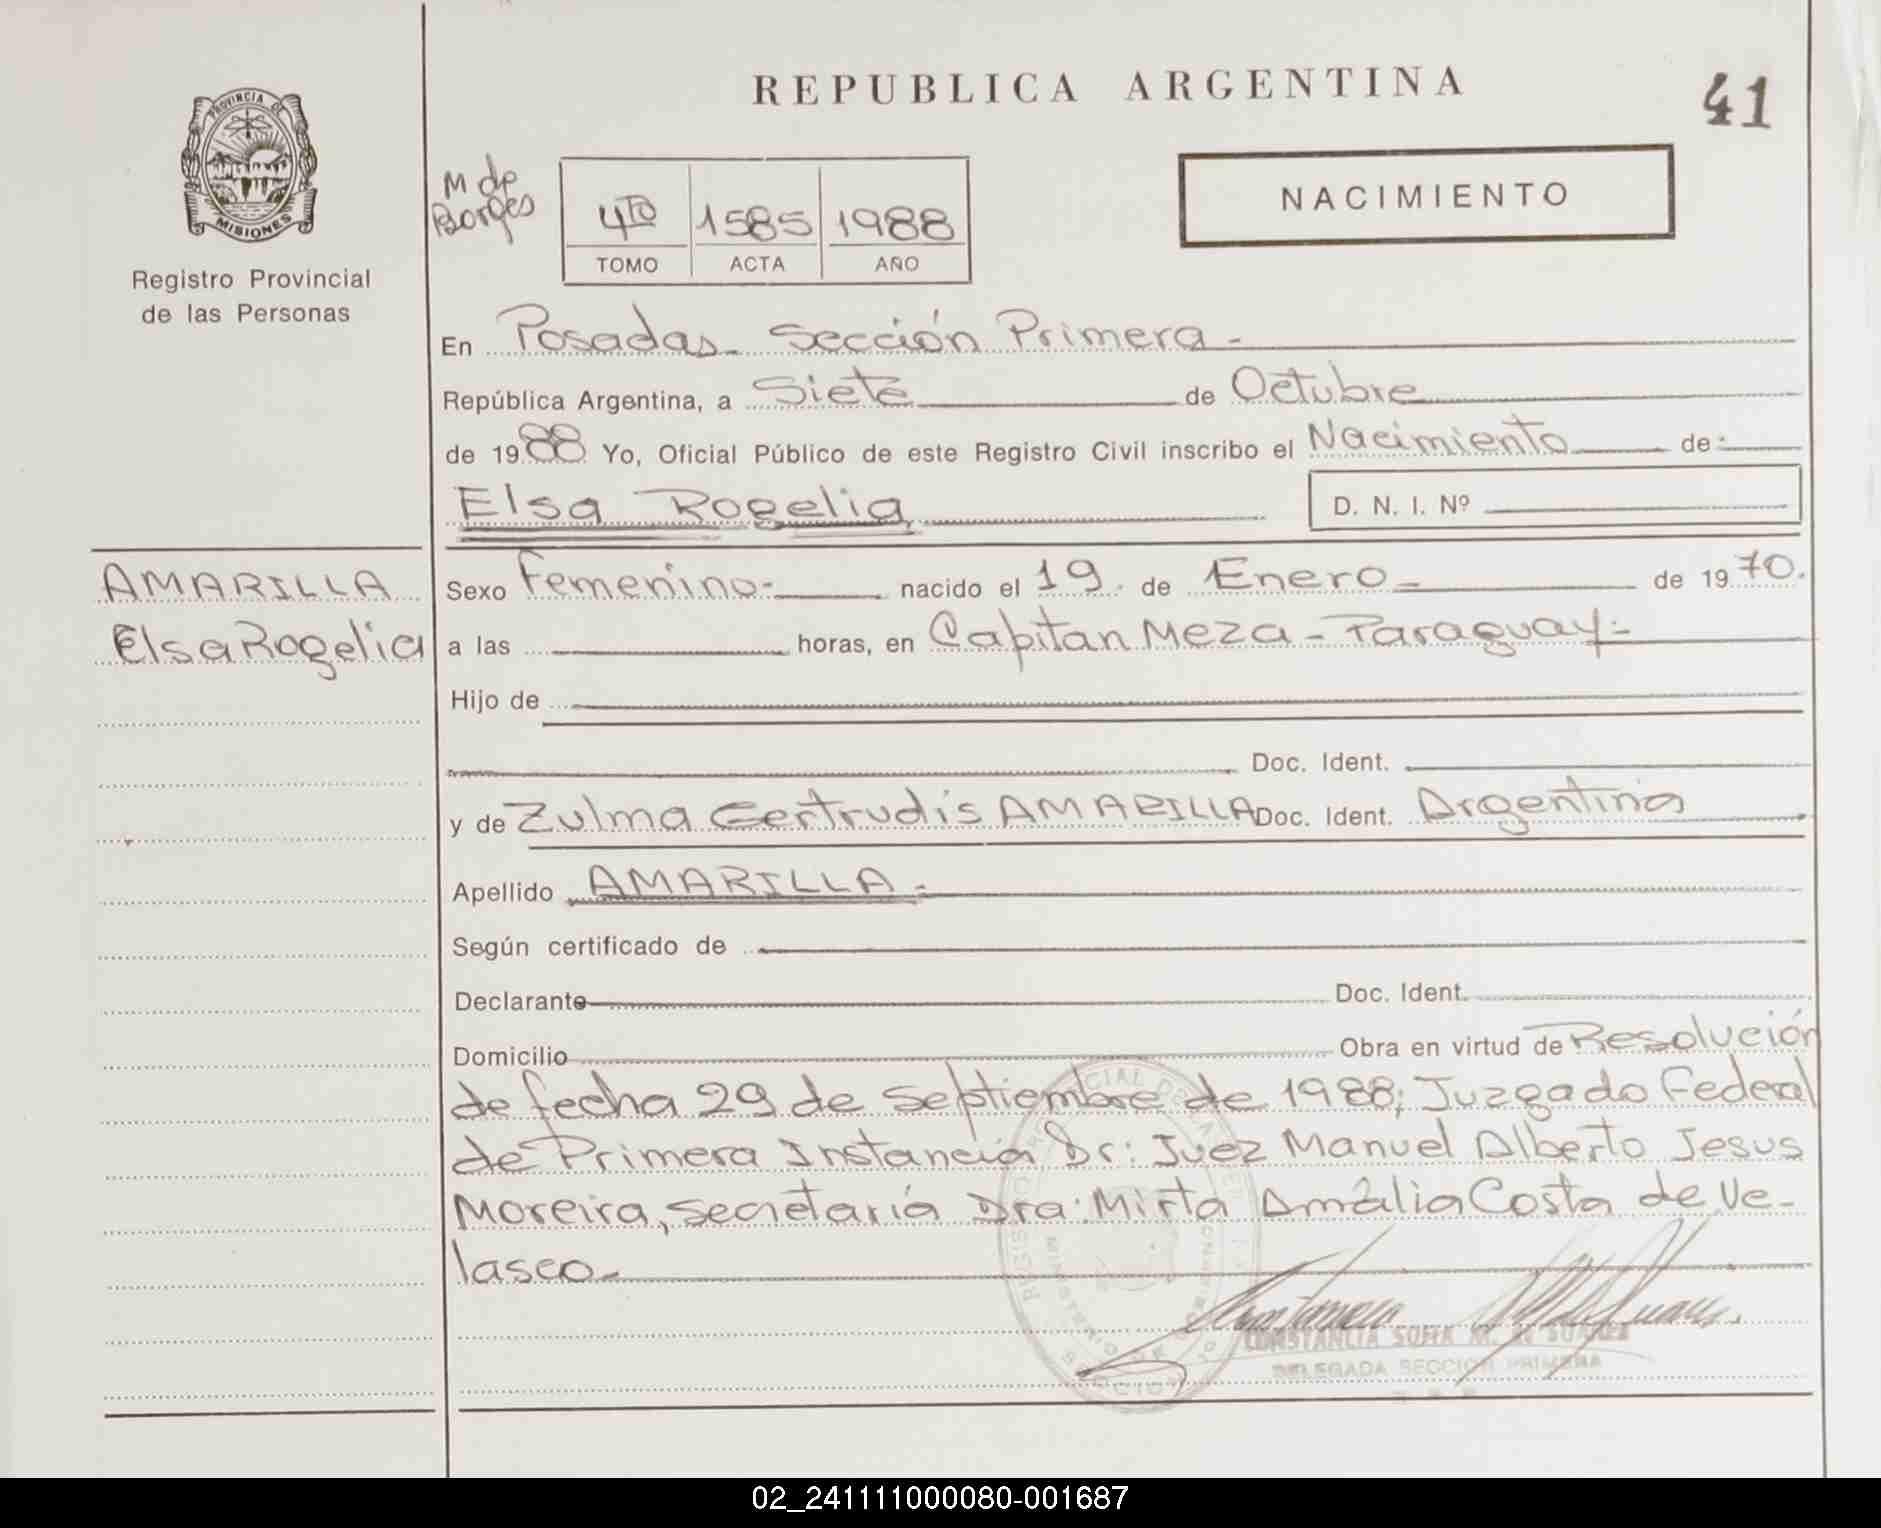 REPUBLICA ARGENTINA
41
PROVINCIA DE
MISIONES
Registro Provincial
de las Personas
M de
Borges
4TO 1585 1988
TOMO ACTA AÑO
NACIMIENTO
En Posadas - Sección Primera -
República Argentina, a Siete de Octubre
de 1988 Yo, Oficial Público de este Registro Civil inscribo el Nacimiento de:
Elsa Rogelia
D. N. I. Nº
AMARILLA
Elsa Rogelia
Sexo Femenino.- nacido el 19 de Enero - de 1970.
a las horas, en Capitan Meza - Paraguay -
Hijo de
Doc. Ident.
y de Zulma Gertrudis AMARILLA Doc. Ident. Argentina
Apellido AMARILLA.-
Según certificado de
Declarante Doc. Ident.
Domicilio Obra en virtud de Resolución
de fecha 29 de Septiembre de 1988; Juzgado Federal
de Primera Instancia Dr: Juez Manuel Alberto Jesus
Moreira, Secretaría Dra: Mirta Amàlia Costa de Ve-
lasco -
CONSTANCIA SOFIA M. DE SUAREZ
DELEGADA SECCION PRIMERA
02_241111000080-001687